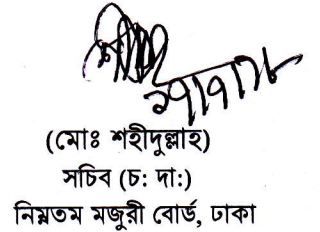 (মোঃ শহীদুল্লাহ)
সচিব (চ: দা:)
নিম্নতম মজুরী বোর্ড, ঢাকা